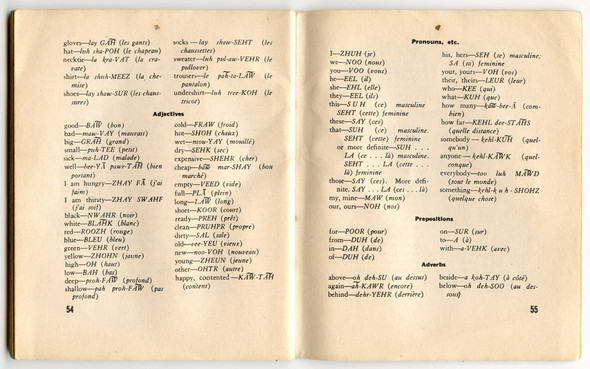 gloves—lay GAH (les gants)
hat—luh sha-POH (le chapeau)
necktie—la kra-VAT (la cra-
vate)
shirt—la shuh-MEEZ (la che-
mise)
shoes—lay show-SUR (les chaus-
sures)
socks—lay show-SEHT (les
chaussettes)
sweater—luh pul-au-VEHR (le
pullover)
trousers—le pah-ta-LAW (le
pantalon)
undershirt—luh tree-KOH (le
tricot)
Adjectives
good—BAW (bon)
bad—mau-VAY (mauvais)
big—GRAH (grand)
small—puh-TEE (petit)
sick—ma-LAD (malade)
well—bee-YA pawr-TAH (bien
portant)
I am hungry—ZHAY FA (j'ai
faim)
I am thirsty—ZHAY SWAHF
(j'ai soif)
black—NWAHR (noir)
white—BLAHK (blanc)
red—ROOZH (rouge)
blue—BLEU (bleu)
green—VEHR (vert)
yellow—ZHOHN (jaune)
high—OH (haut)
low—BAH (bas)
deep—proh-FAW (profond)
shallow—pah proh-FAW (pas
profond)
cold—FRAW (froid)
hot—SHOH (chaux)
wet—mou-YAY (mouillé)
dry—SEHK (sec)
expensive—SHEHR (cher)
cheap—baw mar-SHAY (bon
marché)
empty—VEED (vide)
full—PLA (plein)
long—LAW (long)
short—KOOR (court)
ready—PREH (prêt)
clean—PRUHPR (propre)
dirty—SAL (sale)
old—vee-YEU (vieux)
new—noo-VOH (nouveau)
young—ZHEUN (jeune)
other—OHTR (autre)
happy, contented—KAW-TAH
(content)
54
Pronouns, etc.
I—ZHUH (je)
we—NOO (nous)
you—VOO (vous)
he—EEL (il)
she—EHL (elle)
they—EEL (ils)
this—SUH (ce) masculine
SEHT (cette) feminine
these—SAY (ces)
that—SUH (ce) masculine,
SEHT (cette) feminine
or more definite—SUH . . .
LA (ce . . . là) masculine.
SEHT . . . LA (cette . . .
là) feminine
those—SAY (ces). More defi-
nite, SAY . . . LA (ces . . . là)
my, mine—MAW (mon)
our, ours—NOH (nos)
his, hers—SEH (se) masculine;
SA (sa) feminine
your, yours—VOH (vos)
their, theirs—LEUR (leur)
who—KEE (qui)
what—KUH (que)
how many—kaw-bee-A (com-
bien)
how far—KEHL dee-STAHS
(quelle distance)
somebody—kehl-KUH (quel-
qu'un)
anyone—kehl-KAWK (quel-
conque)
everybody—too luh MAWD
(tout le monde)
something—kehl-kuh-SHOHZ
(quelque chose)
Prepositions
for—POOR (pour)
from—DUH (de)
in—DAH (dans)
of—DUH (de)
on—SUR (sur)
to—A (à)
with—a-VEHK (avec)
Adverbs
above—oh deh-SU (au dessus)
again—ah-KAWR (encore)
behind—dehr-YEHR (derrière)
beside—a koh-TAY (à côté)
below—oh deh-SOO (au des-
sous)
55